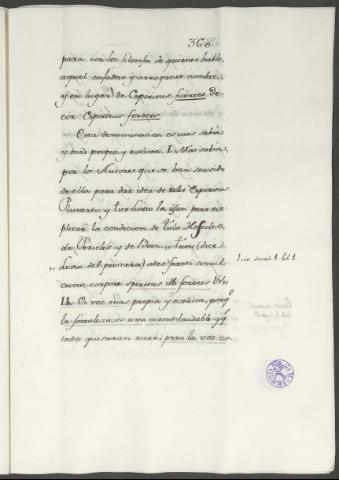 368.
para con los filosofos de quienes hablo,
aquel enfatico y arrogante nombre,
y en lugar de Espiritus fuertes de-
cir Espiritus feroces
Esta denominacion es mas sabia
y mas propia y exacta. I. Mas sabia,
por los Autores que se han servido
de ella para dar idea de tales Espiritus.
Plutarco y Tito Livio la usan para ex-
plicar la condicion de Tulo Hostilio,
de Pericles y de Dion, "tunc (dice
" Livio dec. primera) adeo fracti simul
cum corpore spiritus illi feroces &c.
II. Es voz mas propia y exacta, porq.e
la fortaleza es una virtud laudable y q.e
todos quisieran tener; pero la voz es-
Liv. decad. 1. lib. 1.